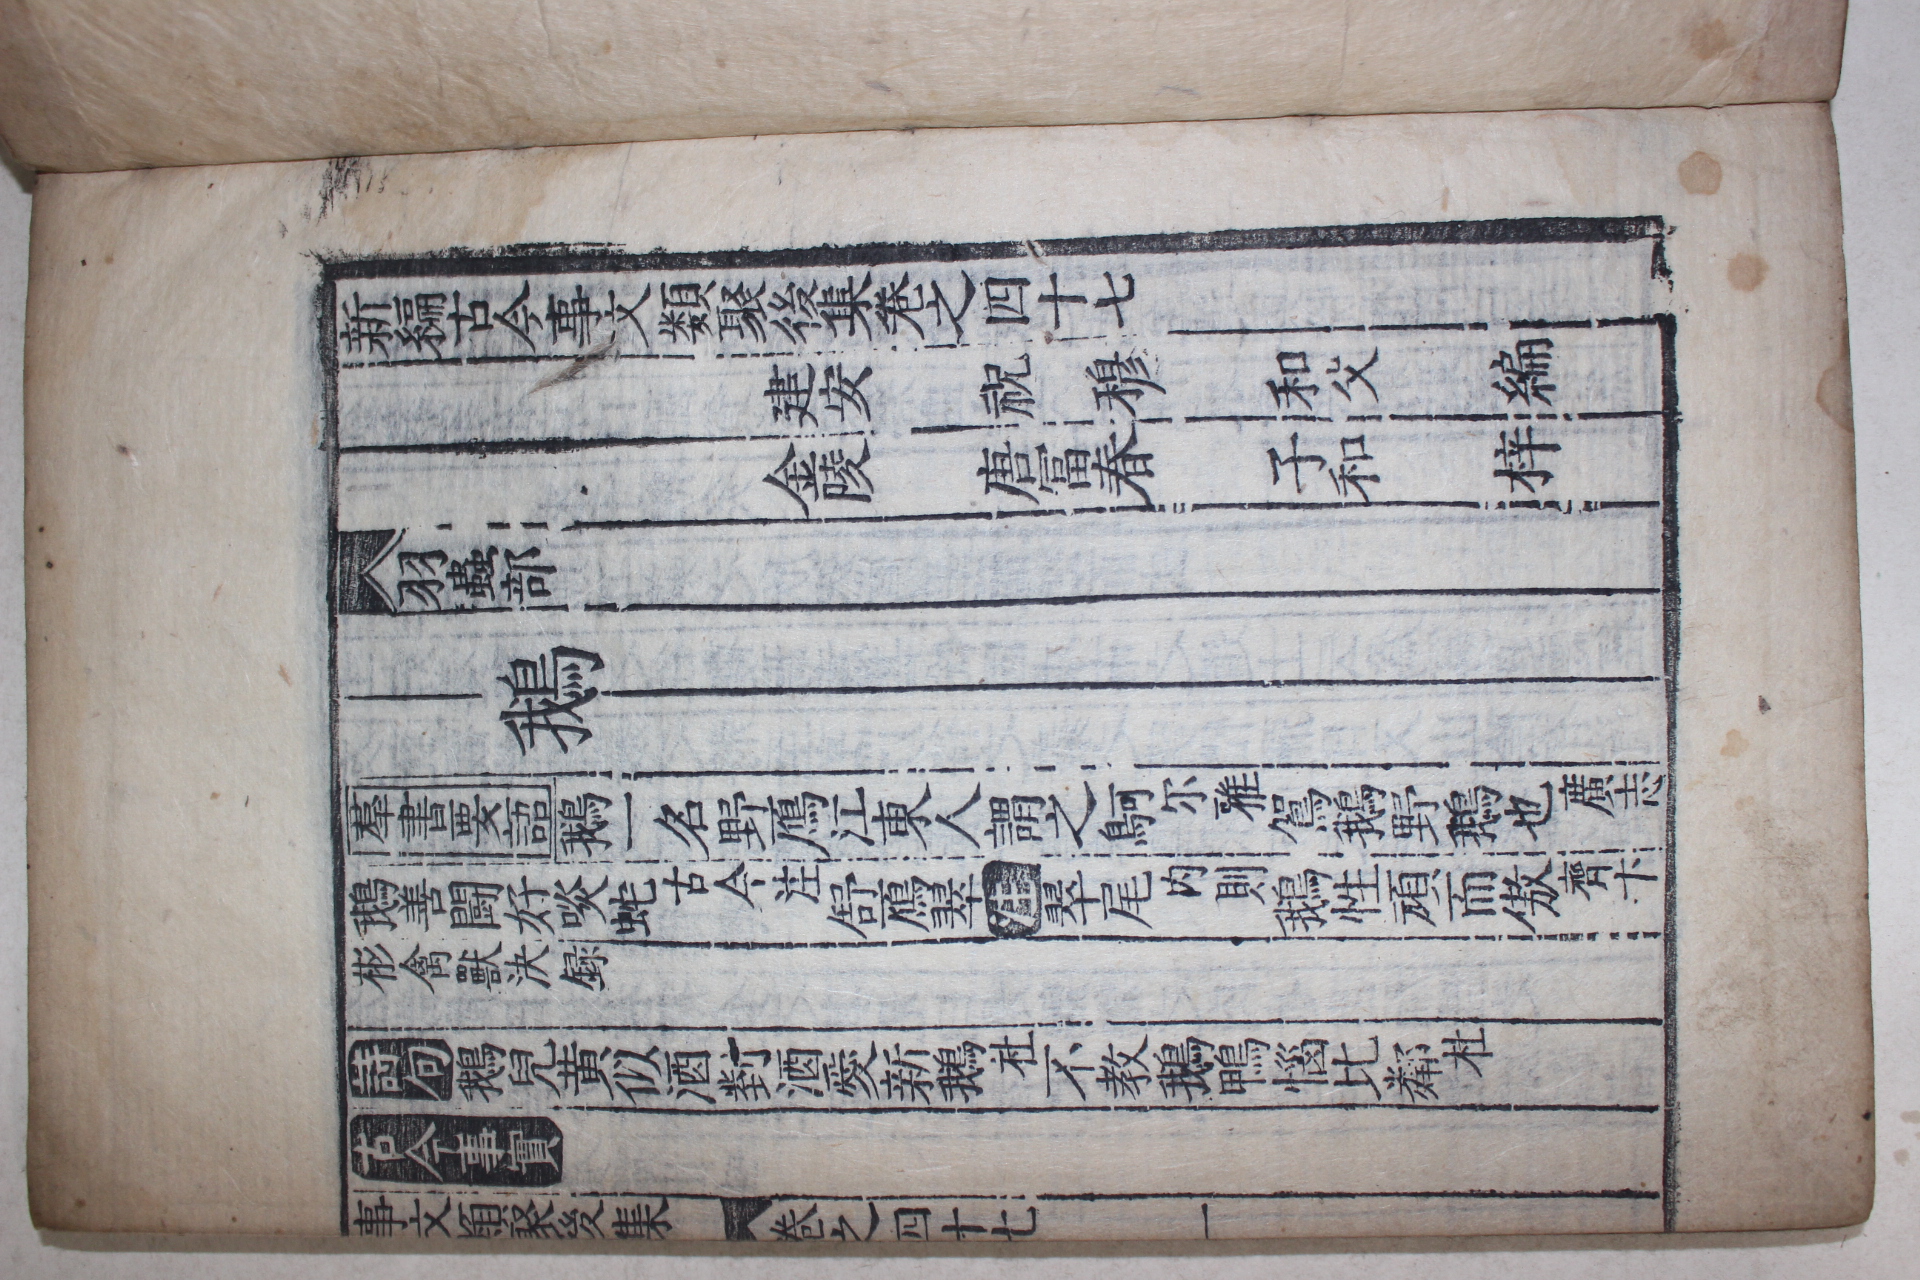 新編古今事文類聚後集卷之四十七
建安 祝 穆 和父 編
金陵 唐冨春 子和 梓
羽蟲部
鵝
羣書要語鵝一名野鴈江東人謂之鴚尔雅鴐鵝野鵝也廣志
鵝善闘好啖蛇古今注舒鴈翠注翠尾内則鵝性頑而傲齊卞
彬禽獸决録
詩句鵝兒黄似酒對酒愛新鵝杜不教鵝鴨惱比鄰杜
古今事實
事文類聚後集 卷之四十七 一